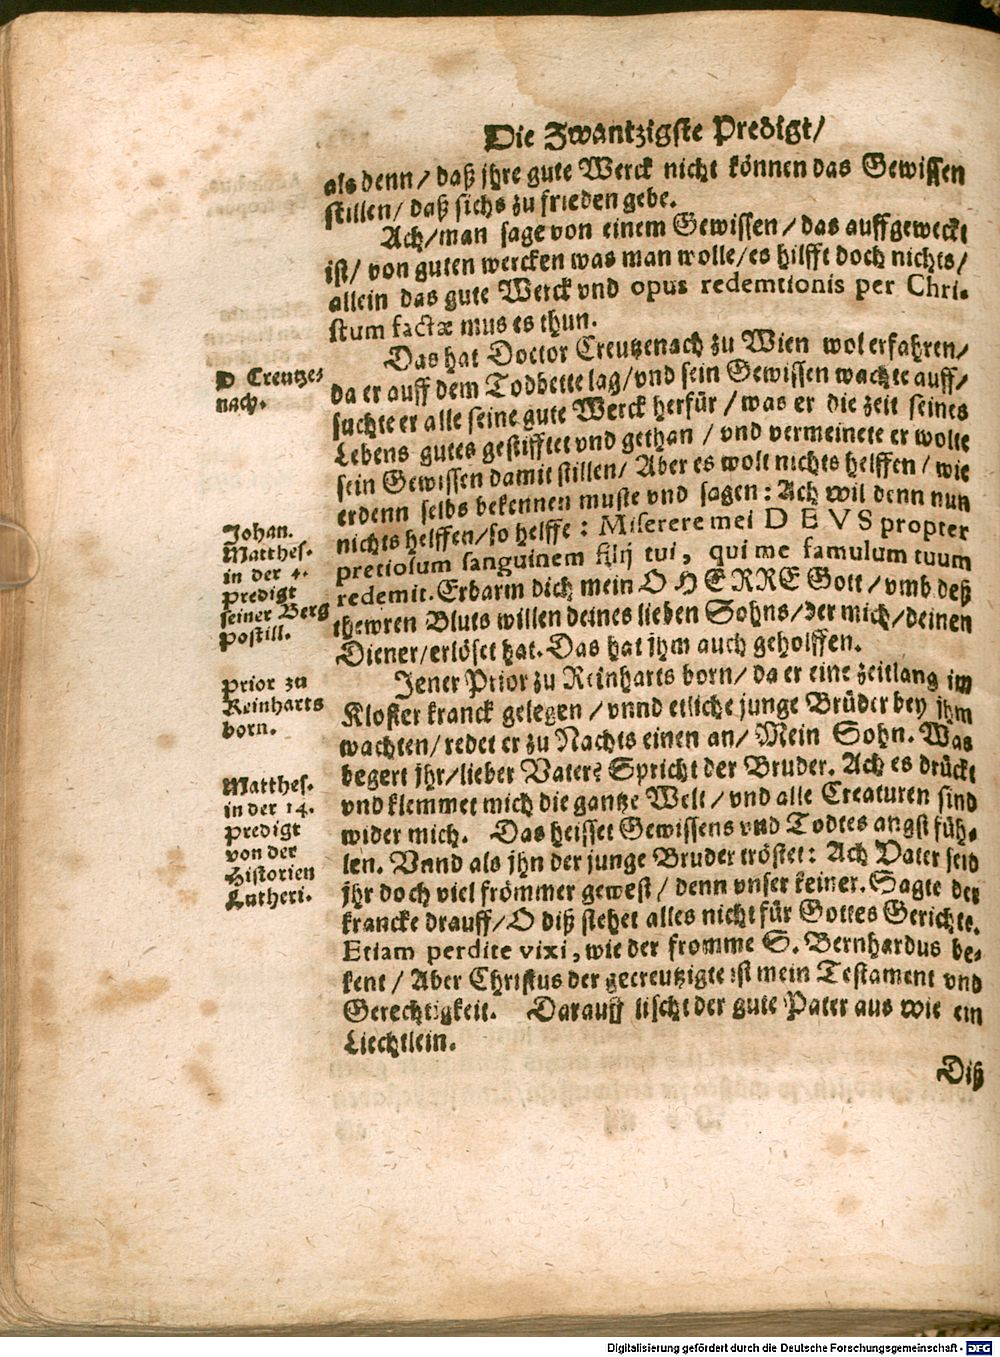 Die Zwantzigste Predigt/
als denn/ daß jhre gute Werck nicht können das Gewissen
stillen/ daß sichs zu frieden gebe.
Ach/man sage von einem Gewissen/das auffgeweckt
ist/ von guten wercken was man wolle/es hilfft doch nichts/
allein das gute Werck vnd opus redemtionis per Chri-
stum factæ mus es thun.
Das hat Doctor Creutzenach zu Wien wol erfahren/
da er auff dem Todbette lag/vnd sein Gewissen wachte auff/
suchte er alle seine gute Werck herfür/was er die zeit seines
Lebens gutes gestifftet vnd gethan/vnd vermeinete er wolte
sein Gewissen damit stillen/ Aber es wolt nichts helffen/wie
er denn selbs bekennen muste vnd sagen: Ach wil denn nun
nichts helffen/so helffe: Miserere mei DEVS propter
pretiosum sanguinem filij tui, qui me famulum tuum
redemit. Erbarm dich mein O HERRE Gott/vmb deß
thewren Bluts willen deines lieben Sohns/der mich/deinen
Diener/erlöset hat. Das hat jhm auch geholffen.
Jener Prior zu Reinharts born/da er eine zeitlang im
Kloster kranck gelegen/vnnd etliche junge Brüder bey jhm
wachten/redet er zu Nachts einen an/ Mein Sohn. Was
begert jhr/lieber Vater? Spricht der Bruder. Ach es drückt
vnd klemmet mich die gantze Welt/vnd alle Creaturen sind
wider mich. Das heisset Gewissens vnd Todtes angst füh-
len. Vnnd als jhn der junge Bruder tröstet: Ach Vater seid
jhr doch viel frömmer gewest/denn vnser keiner. Sagte der
krancke drauff/O diß stehet alles nicht für Gottes Gerichte.
Etiam perdite vixi, wie der fromme S. Bernhardus be-
kent/ Aber Christus der gecreutzigte ist mein Testament vnd
Gerechtigkeit. Darauff lischt der gute Pater aus wie ein
Liechtlein.
Diß
D Creutze-
nach.
Johan.
Matthes.
in der 4.
predigt
seiner Berg
postill.
Prior zu
Reinharts
born.
Matthes.
in der 14.
predigt
von der
Historien
Lutheri.
Digitalisierung gefördert durch die Deutsche Forschungsgemeinschaft - DFG